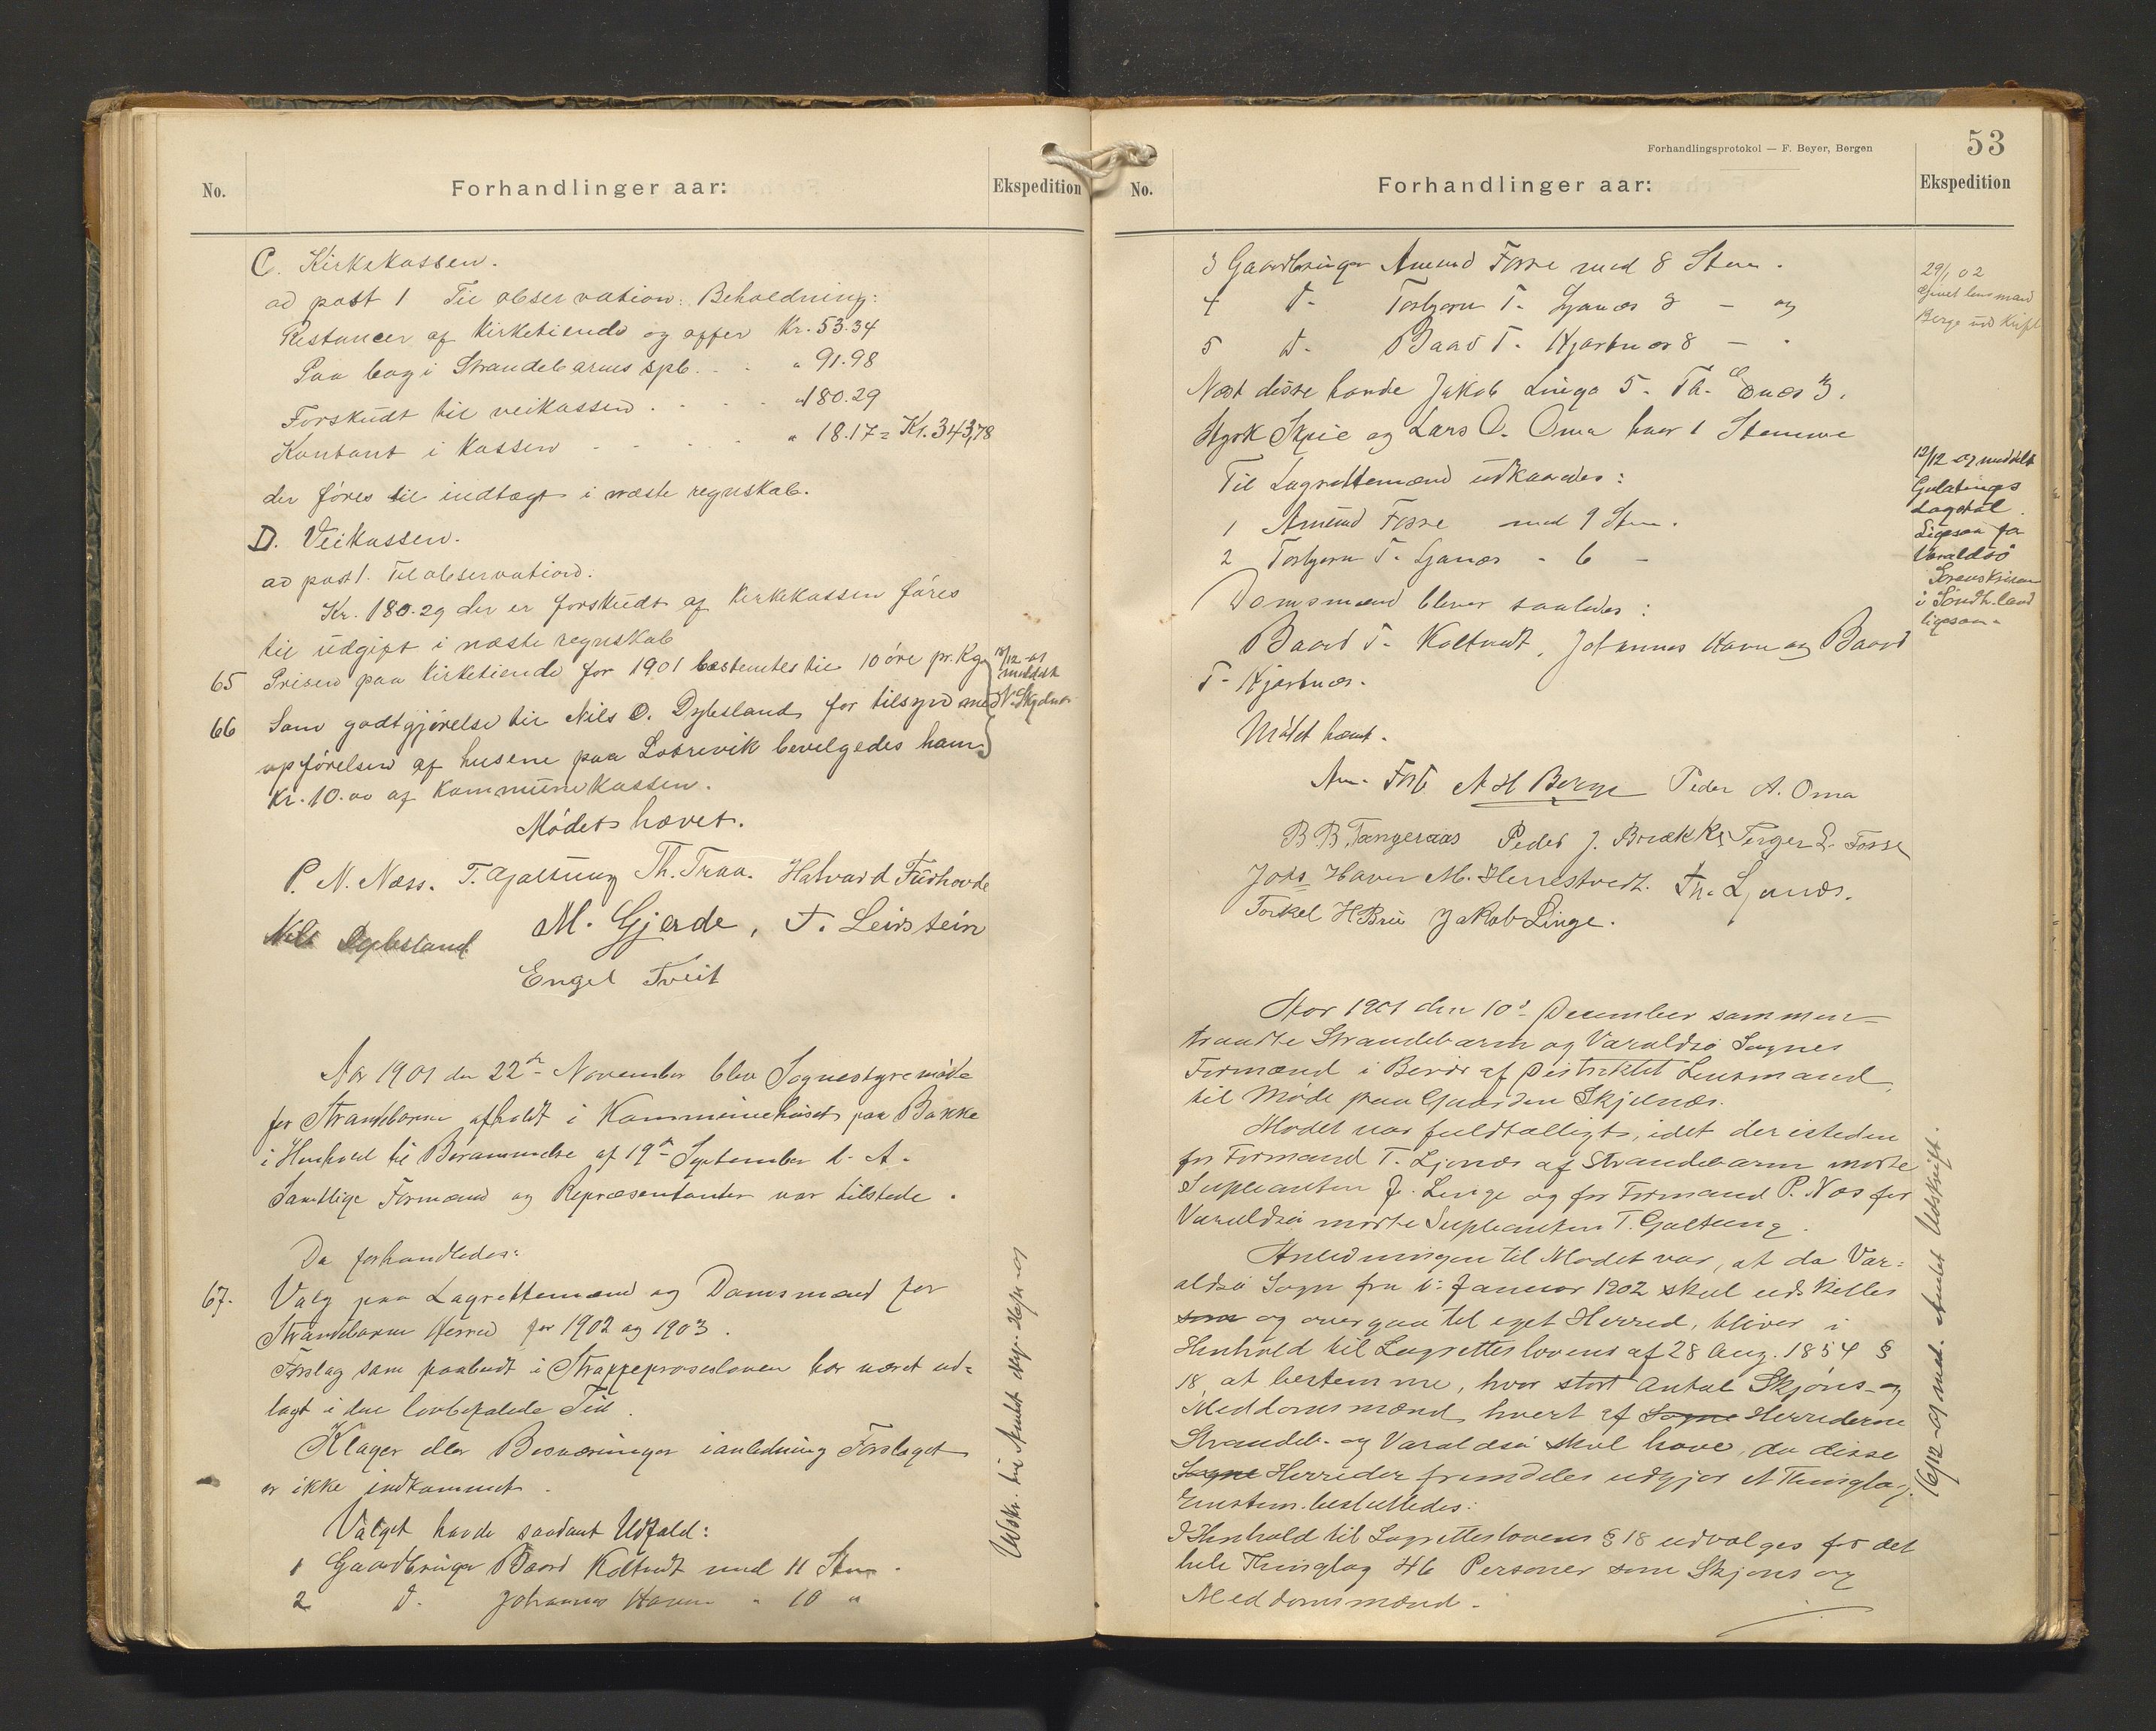 No.
Forhandlinger aar:
Ekspedition
C. Kirkekassen.
ad post 1 Til observation: Beholdning:
Restancer af Kirketiende og offer Kr. 53.34
Paa bog i Strandebarms spb. . . " 91.98
Forskudt til veikassen . . . . " 180.29
Kontant i Kassen - - - - " 18.17 = Kr. 343,78
der føres til indtægt i næste regnskab.
D. Veikassen.
ad post 1. Til observation.
Kr. 180.29 der er forskudt af Kirkekassen føres
til udgift i næste regnskab
65 Prisen paa Kirketiende for 1901 bestemtes til 10 øre pr. Kg.
66 Som godtgjørelse til Nils O. Dybsland for tilsyn med
opførelsen af husene paa Losrevik bevilgedes ham
Kr. 10.00 af Kommunekassen.
12/12 - 01
meddelt
N. Skjelnæs
Mødet hævet.
P. N. Næss. T. Galtung Th. Traa. Halvard Furhovde
Nils Dybsland M. Gjerde, T. Leirstein
Engel Tveit
Aar 1901 den 22de November blev Sognestyremøde
for Strandebarm afholdt i Kommunehuset paa Bakke
i Henhold til Berammelse af 19de September d. A.
Samtlige Formænd og Repræsentanter var tilstede.
Da forhandledes:
67. Valg paa Lagrettemænd og Domsmænd for
Strandebarm Herred for 1902 og 1903.
Forslag som paabudt i Straffeprosesloven har været ud=
lagt i den lovbefalede Tid.
Klager eller Besværinger i anledning Forslaget
er ikke indkommet.
Valget havde saadant Udfald:
1 Gaardbruger Baard Koltvedt med 11 Stm.
2 d. Johannes Haven " 10 "
Udskr. til Amtet
53
Forhandlingsprotokol — F. Beyer, Bergen
No.
Forhandlinger aar:
Ekspedition
3 Gaardbruger Amund Fosse med 8 Stem.
4 d- Torbjørn T. Ljonæs 8 - og
5 d- Baard T. Hjartnæs 8 - .
Næst disse havde Jakob Linga 5. Th. 3.
Lars O. Oma hver 1 Stemme
Til Lagrettemænd udkaaredes:
1 Amund Fosse med 9 Stm.
2 Torbjørn T. Ljonæs - 6 -
Domsmænd bliver saaledes:
Baard T. Koltvedt, Johannes Haven og Baard
T. Hjartnæs.
Mødet hævet.
Am. Fosse A H Berge Peder A. Oma
B B. Tangeraas Peder J. Brække Torger L. Fosse
Johs Haven M. Herrestvedt. Th. Ljonæs.
Torkel H Bru Jakob Linge.
29/1 02
givet lensmand
Berge udskrift
12/12 -01 meddelt
Gulatings
Lagstol.
Ligesaa for
Varaldsö
Sorenskriveren
i Söndh.land
ligesaa
Aar 1901 den 10de December sammen=
traadte Strandebarm og Varaldsø Sognes
Formænd i Berør af Distriktet Lensmand,
til Møde paa Gaarden Skjelnæs.
Mødet var fuldtalligt, idet der isteden
for Formand T. Ljonæs af Strandebarm mødte
Supleanten J. Linge og for Formand P. Næs for
Varaldsø mødte Supleanten T. Galtung.
Anledningen til Mødet var, at da Var=
aldsø Sogn fra 1: Januar 1902 skal udskilles
som og overgaa til eget Herred, bliver i
Henhold til Lagrettelovens af 28 Aug. 1854 §
18, at bestemme, hvor stort Antal Skjøns- og
Meddomsmænd hvert af Sogne Herrederne
Strandeb. og Varaldsø skal have, da disse
Sogne Herreder fremdeles udgjør et Thinglag.
Enstem. besluttedes:
I Henhold til Lagrettelovens § 18 udvælges for det
hele Thinglag 46 Personer som Skjøns og
Meddomsmænd.
16/12 - 01 med. Amtet Udskrift.